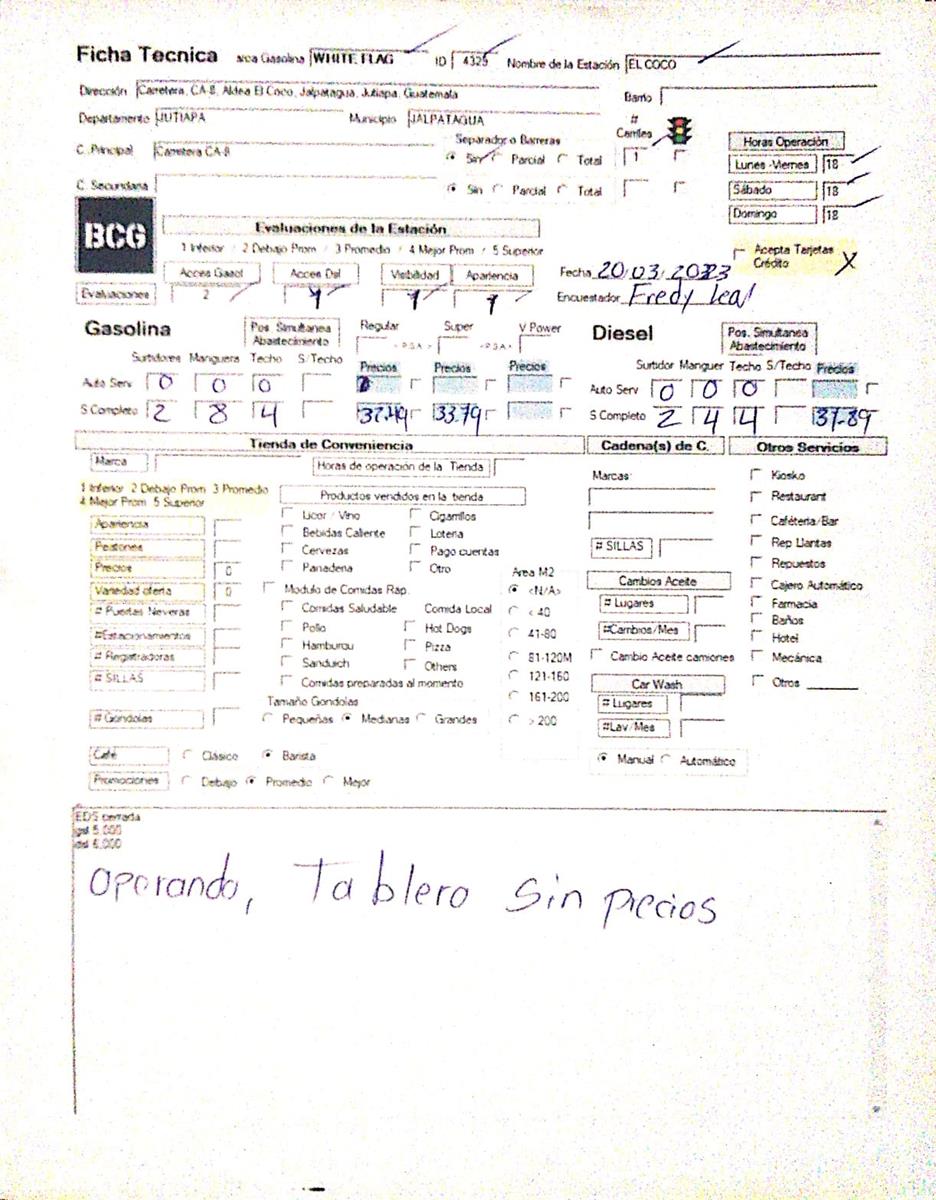 Ficha Tecnica arca Gasolina WHITE FLAG ID 4325 Nombre de la Estación EL COCO
Dirección Carretera, CA-8, Aldea El Coco, Jalpatagua, Jutiapa, Guatemala Barrio
Departamento JUTIAPA Municipio JALPATAGUA # Carriles
Separador o Barreras
C. Principal Carretera CA-8 Sin Parcial Total 1
C. Secundaria Sin Parcial Total
Horas Operación
Lunes -Viernes 18
Sábado 18
Domingo 18
BCG
Evaluaciones de la Estación
1 Inferior / 2 Debajo Prom / 3 Promedio / 4 Mejor Prom / 5 Superior
Acces Gasol Acces Dsl Visibilidad Apariencia
Evaluaciones 2
Acepta Tarjetas Crédito X
Fecha 20/03/2023
Encuestador Fredy Leal
Gasolina Pos. Simultanea Abastecimiento Regular Super V Power
<PSA> <PSA>
Surtidores Manguera Techo S/Techo Precios Precios Precios
Auto Serv 0 0 0
S Completo 2 8 4 33.79
Diesel Pos. Simultanea Abastecimiento
Surtidor Manguer Techo S/Techo Precios
Auto Serv 0 0 0
S Completo 2 4 4 37.89
Tienda de Conveniencia Cadena(s) de C. Otros Servicios
Marca Horas de operación de la Tienda
1 Inferior 2 Debajo Prom 3 Promedio
4 Mejor Prom 5 Superior
Apariencia
Peatones
Precios 0
Variedad oferta 0
# Puertas Neveras
#Estacionamientos
# Registradoras
# SILLAS
# Gondolas
Productos vendidos en la tienda
Licor / Vino Cigarrillos
Bebidas Caliente Loteria
Cervezas Pago cuentas
Panaderia Otro
Modulo de Comidas Rap.
Comidas Saludable Comida Local
Pollo Hot Dogs
Hamburgu Pizza
Sanduich Others
Comidas preparadas al momento
Tamaño Gondolas
Pequeñas Medianas Grandes
Area M2
<N/A>
< 40
41-80
81-120M
121-160
161-200
> 200
Café Clásico Barista
Promociones Debajo Promedio Mejor
Marcas:
# SILLAS
Cambios Aceite
# Lugares
#Cambios/Mes
Cambio Aceite camiones
Car Wash
# Lugares
#Lav/Mes
Manual Automático
Kiosko
Restaurant
Caféteria/Bar
Rep Llantas
Repuestos
Cajero Automático
Farmacia
Baños
Hotel
Mecánica
Otros
EDS cerrada
gsl 5,000
dsl 6,000
Operando, Tablero sin precios